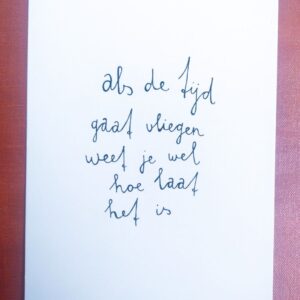 als de tijd
gaat vliegen
weet je wel
hoe laat
het is